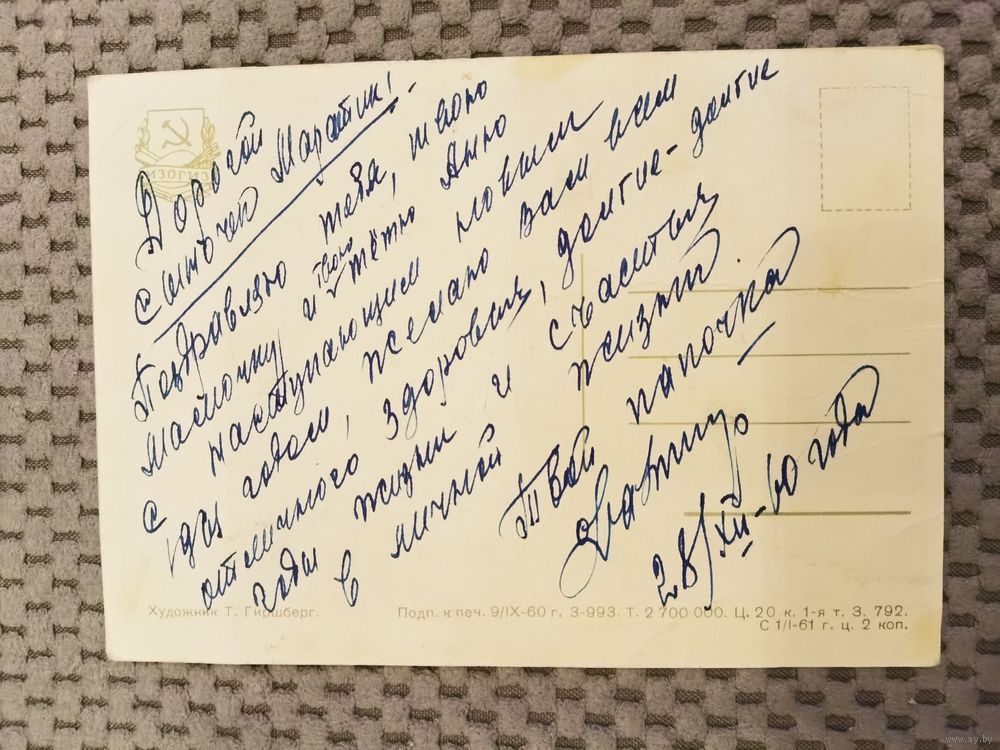 ИЗОГИЗ
Дорогой
сыночек Маратик!
Поздравляю тебя, твою
мамочку и твою тётю Анню
с наступающим новым
годом, желаю вам всем
отличного здоровья, долгие-долгие
годы жизни и счастья
в личной жизни.
Твой папочка
28/XII-60 года
Художник Т. Гиршберг.
Подп. к печ. 9/IX-60 г. З-993. Т. 2 700 000. Ц. 20 к. 1-я т. З. 792.
С 1/I-61 г. ц. 2 коп.
www.ay.by